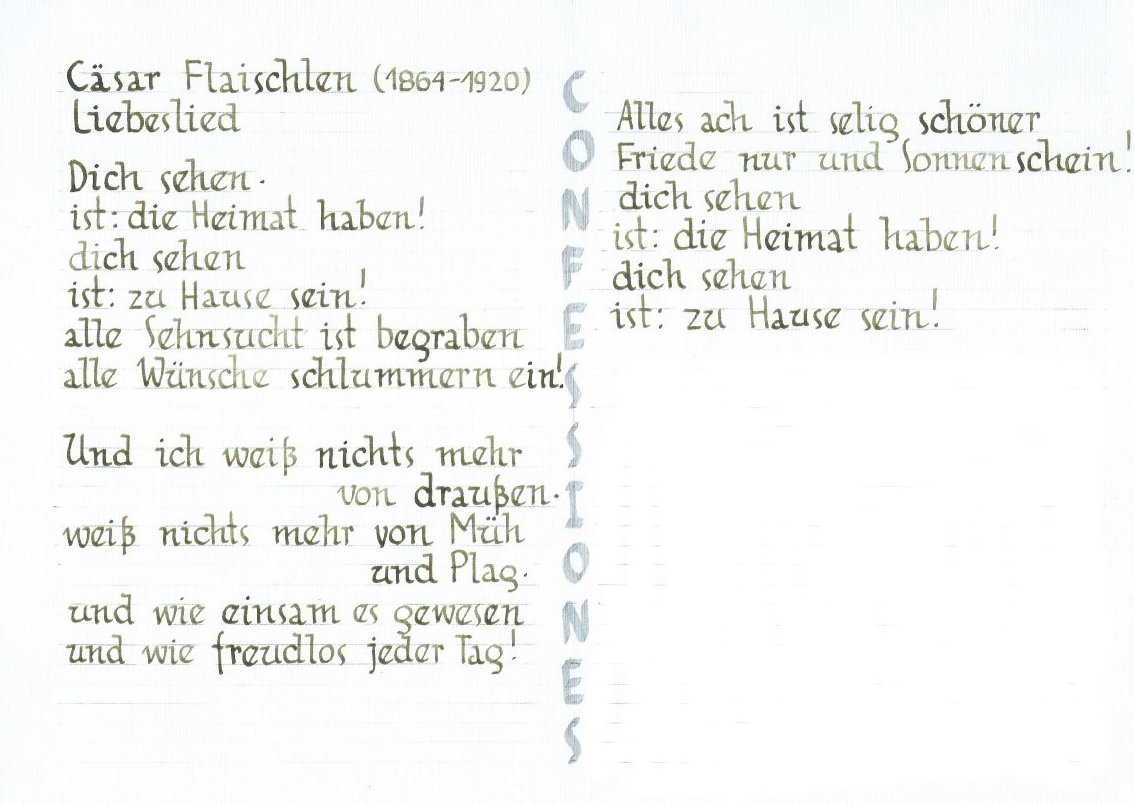 Cäsar Flaischlen (1864-1920)
Liebeslied
Dich sehen.
ist: die Heimat haben!
dich sehen
ist: zu Hause sein!
alle Sehnsucht ist begraben
alle Wünsche schlummern ein!
Und ich weiß nichts mehr
von draußen.
weiß nichts mehr von Müh
und Plag.
und wie einsam es gewesen
und wie freudlos jeder Tag!
CONFESSIONES
Alles ach ist selig schöner
Friede nur und Sonnenschein!
dich sehen
ist: die Heimat haben!
dich sehen
ist: zu Hause sein!